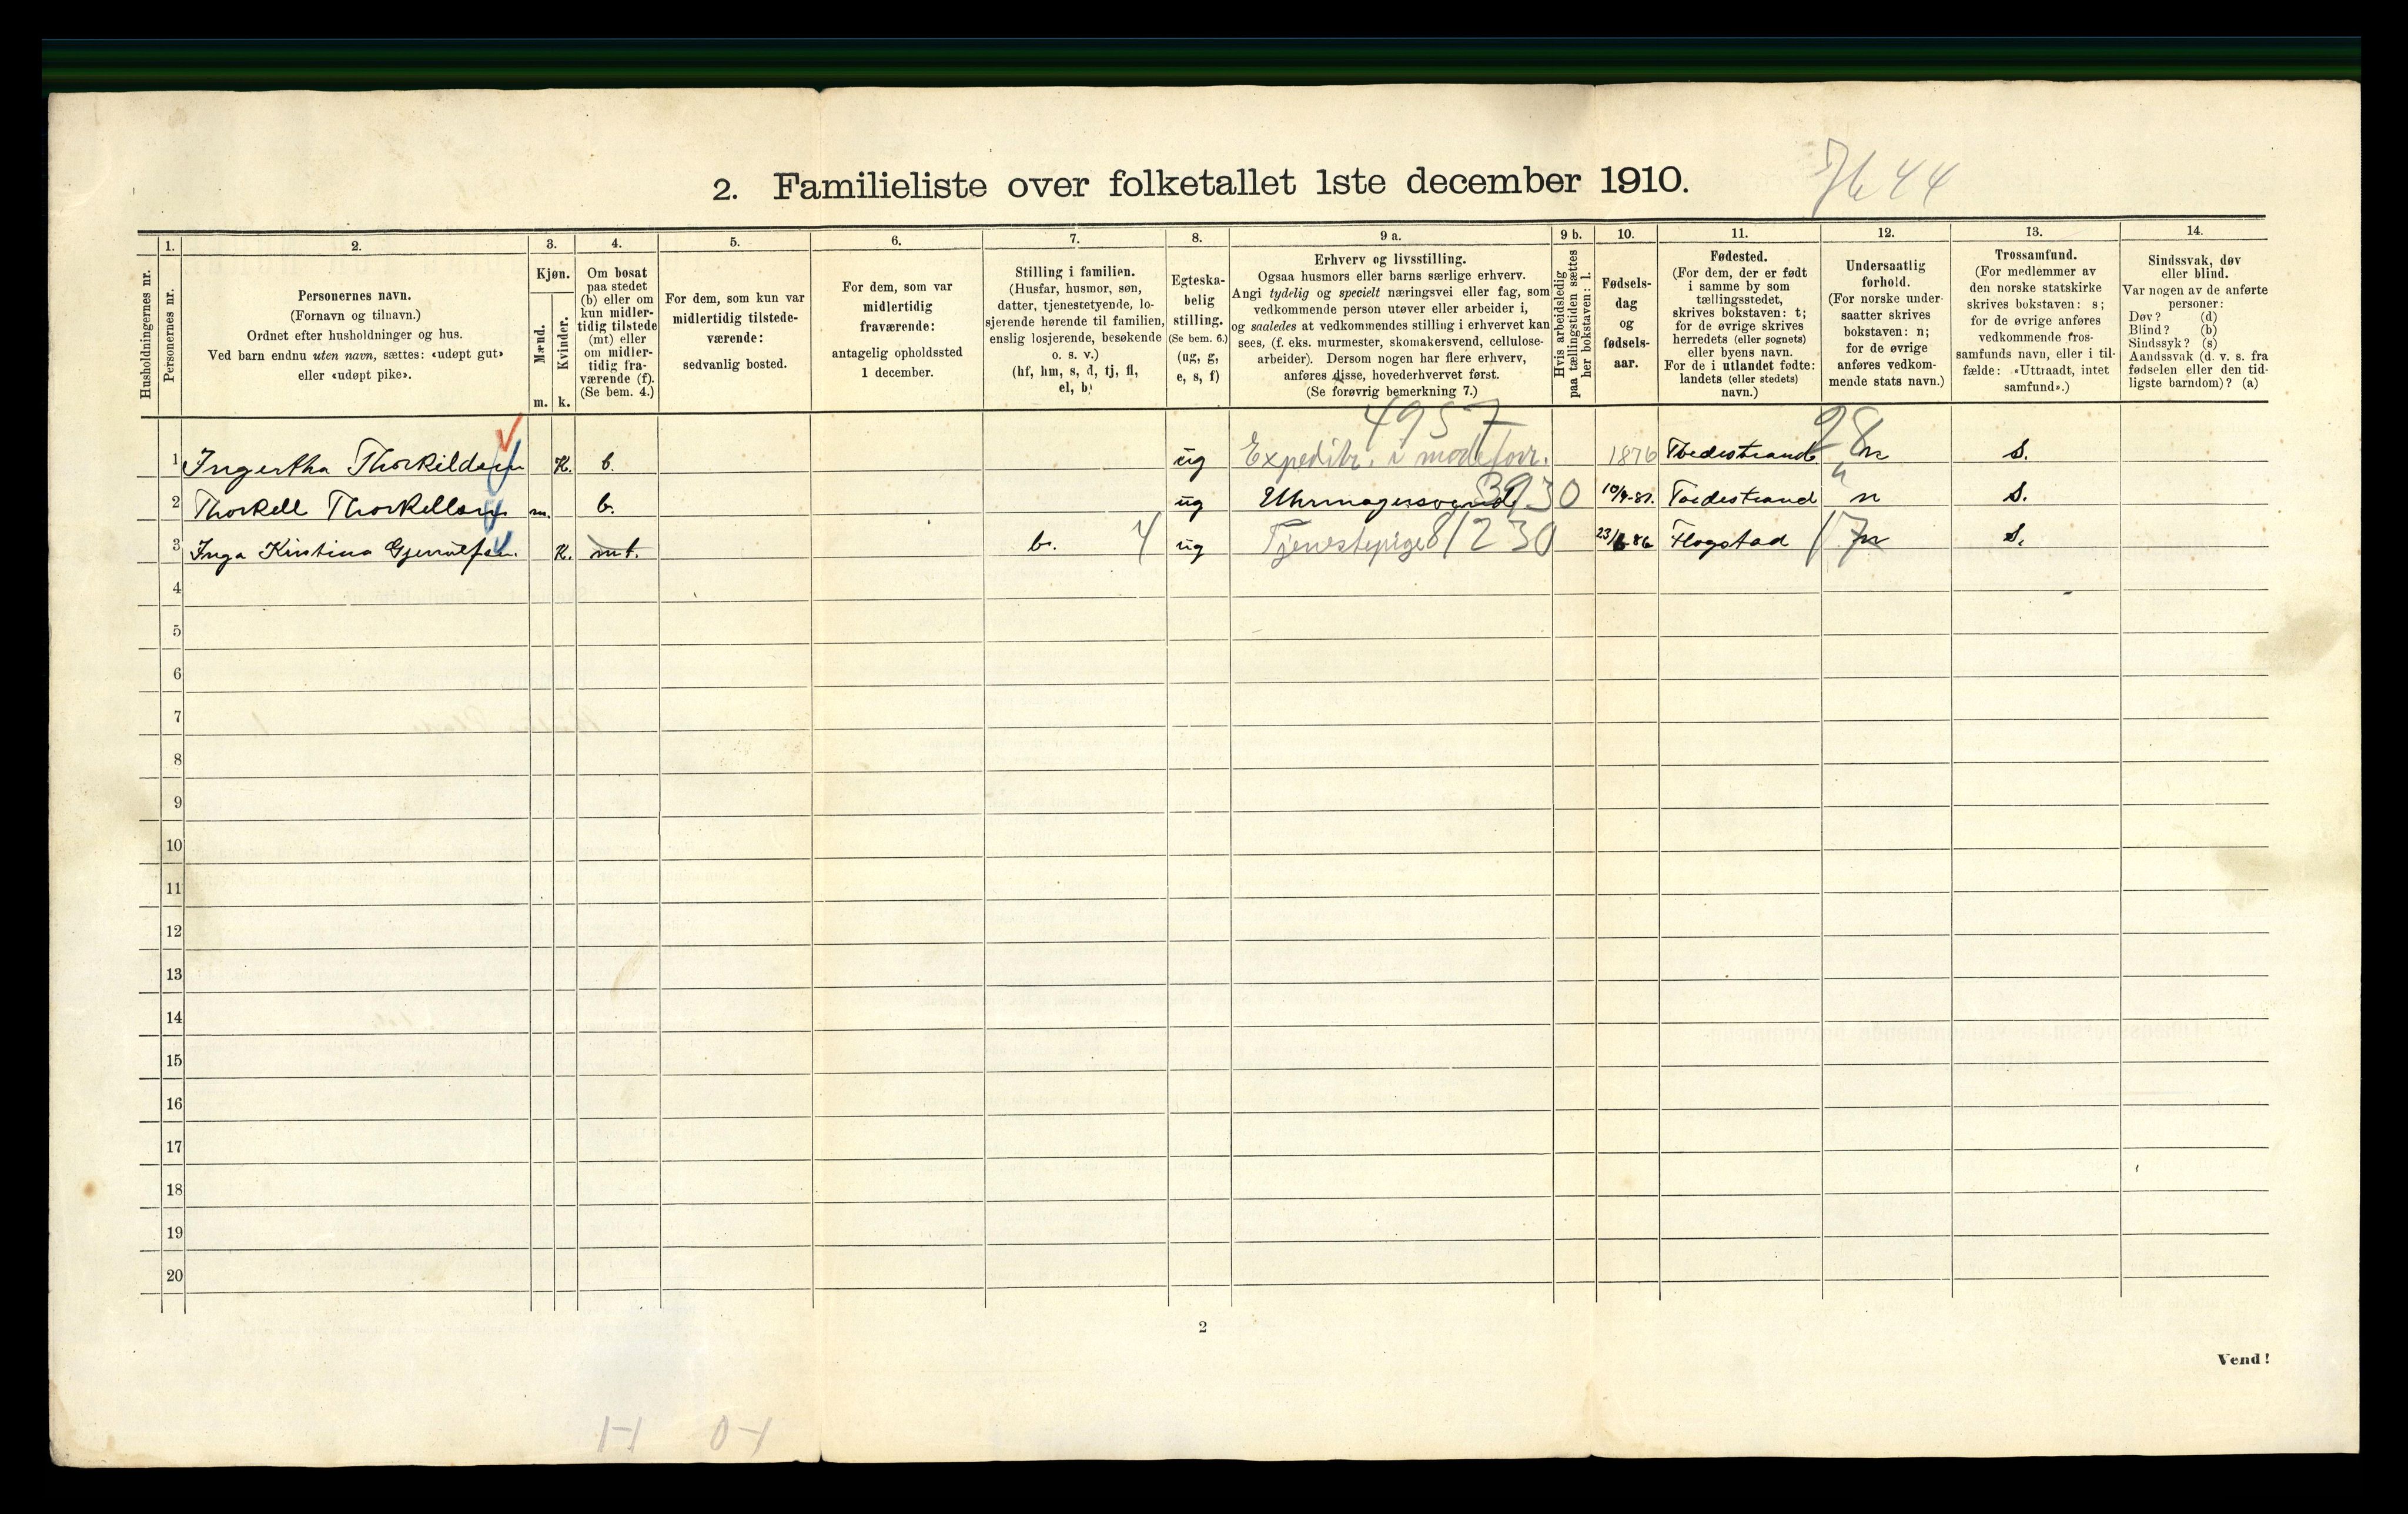 2. Familieliste over folketallet 1ste december 1910.
7644
Husholdningernes nr.
1.
Personernes nr.
2.
Personernes navn.
(Fornavn og tilnavn.)
Ordnet efter husholdninger og hus.
Ved barn endnu uten navn, sættes: «udøpt gut»
eller «udøpt pike».
3.
Kjøn.
Mænd.
Kvinder.
m. k.
4.
Om bosat
paa stedet
(b) eller om
kun midler-
tidig tilstede
(mt) eller
om midler-
tidig fra-
værende (f).
(Se bem. 4.)
5.
For dem, som kun var
midlertidig tilstede-
værende:
sedvanlig bosted.
6.
For dem, som var
midlertidig
fraværende:
antagelig opholdssted
1 december.
7.
Stilling i familien.
(Husfar, husmor, søn,
datter, tjenestetyende, lo-
sjerende hørende til familien,
enslig losjerende, besøkende
o. s. v.)
(hf, hm, s, d, tj, fl,
el, b)
8.
Egteska-
belig
stilling.
(Se bem. 6.)
(ug, g,
e, s, f)
9 a.
Erhverv og livsstilling.
Ogsaa husmors eller barns særlige erhverv.
Angi tydelig og specielt næringsvei eller fag, som
vedkommende person utøver eller arbeider i,
og saaledes at vedkommendes stilling i erhvervet kan
sees, (f. eks. murmester, skomakersvend, cellulose-
arbeider). Dersom nogen har flere erhverv,
anføres disse, hovederhvervet først.
(Se forøvrig bemerkning 7.)
9 b.
Hvis arbeidsledig
paa tællingstiden sættes
her bokstaven: l.
10.
Fødsels-
dag
og
fødsels-
aar.
11.
Fødested.
(For dem, der er født
i samme by som
tællingsstedet,
skrives bokstaven: t;
for de øvrige skrives
herredets (eller sognets)
eller byens navn.
For de i utlandet fødte:
landets (eller stedets)
navn.)
12.
Undersaatlig
forhold.
(For norske under-
saatter skrives
bokstaven: n;
for de øvrige
anføres vedkom-
mende stats navn.)
13.
Trossamfund.
(For medlemmer av
den norske statskirke
skrives bokstaven: s;
for de øvrige anføres
vedkommende tros-
samfunds navn, eller i til-
fælde: «Uttraadt, intet
samfund».)
14.
Sindssvak, døv
eller blind.
Var nogen av de anførte
personer:
Døv? (d)
Blind? (b)
Sindssyk? (s)
Aandssvak (d. v. s. fra
fødselen eller den tid-
ligste barndom)? (a)
4957 28
1 Ingertha Thorkildsen K. b. ug Expeditr. i modeforr. 1876 Tvedestrand n S.
2 Thorkell Thorkellsen m. b. ug Uhrmagersvend 3930 10/9-81. Tvedestrand n S.
3 Inga Kristina K. mt. b. 4 ug Tjenestepige 81230 23/6 86 Flogstad 17 n S.
4
5
6
7
8
9
10
11
12
13
14
15
16
17
18
19
20
2
Vend!